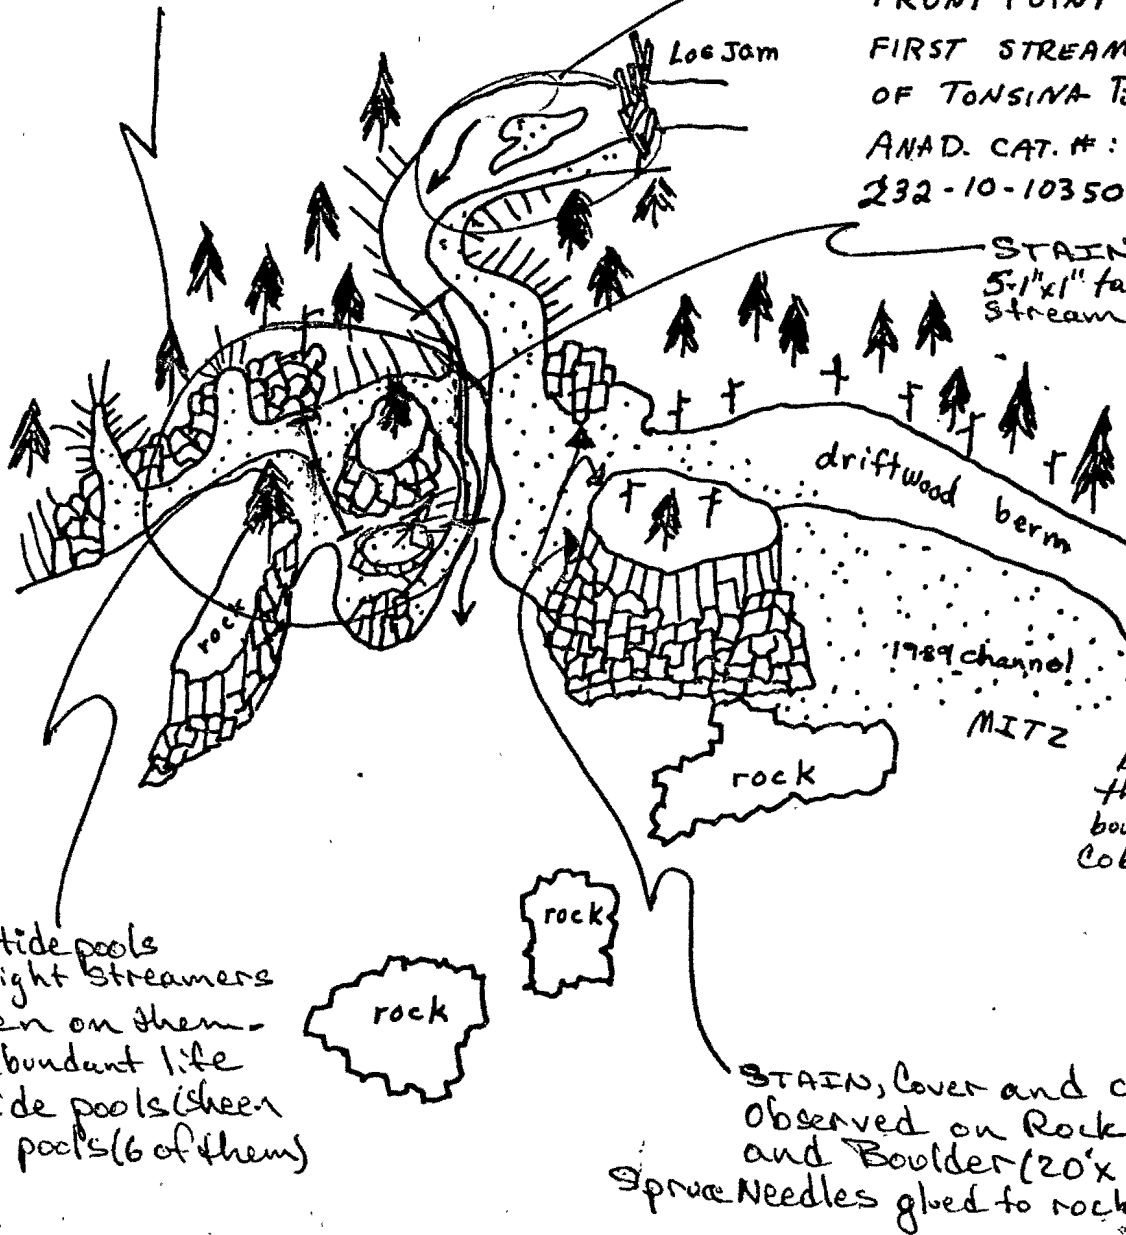 FRONT POINT
Log Jam
FIRST STREAM
OF TONSINA
ANAD. CAT. #:
232-10-10350
STAIN
5-1"x1" ta
stream
driftwood berm
rock
1989 channel
MITZ
rock
th
bou
Cob
rock
rock
tide pools
ight streamers
en on them-
bundant life
ide pools (sheen
pools (6 of them)
STAIN, Cover and c
Observed on Rock
and Boulder (20'x
Spruce Needles glued to rock